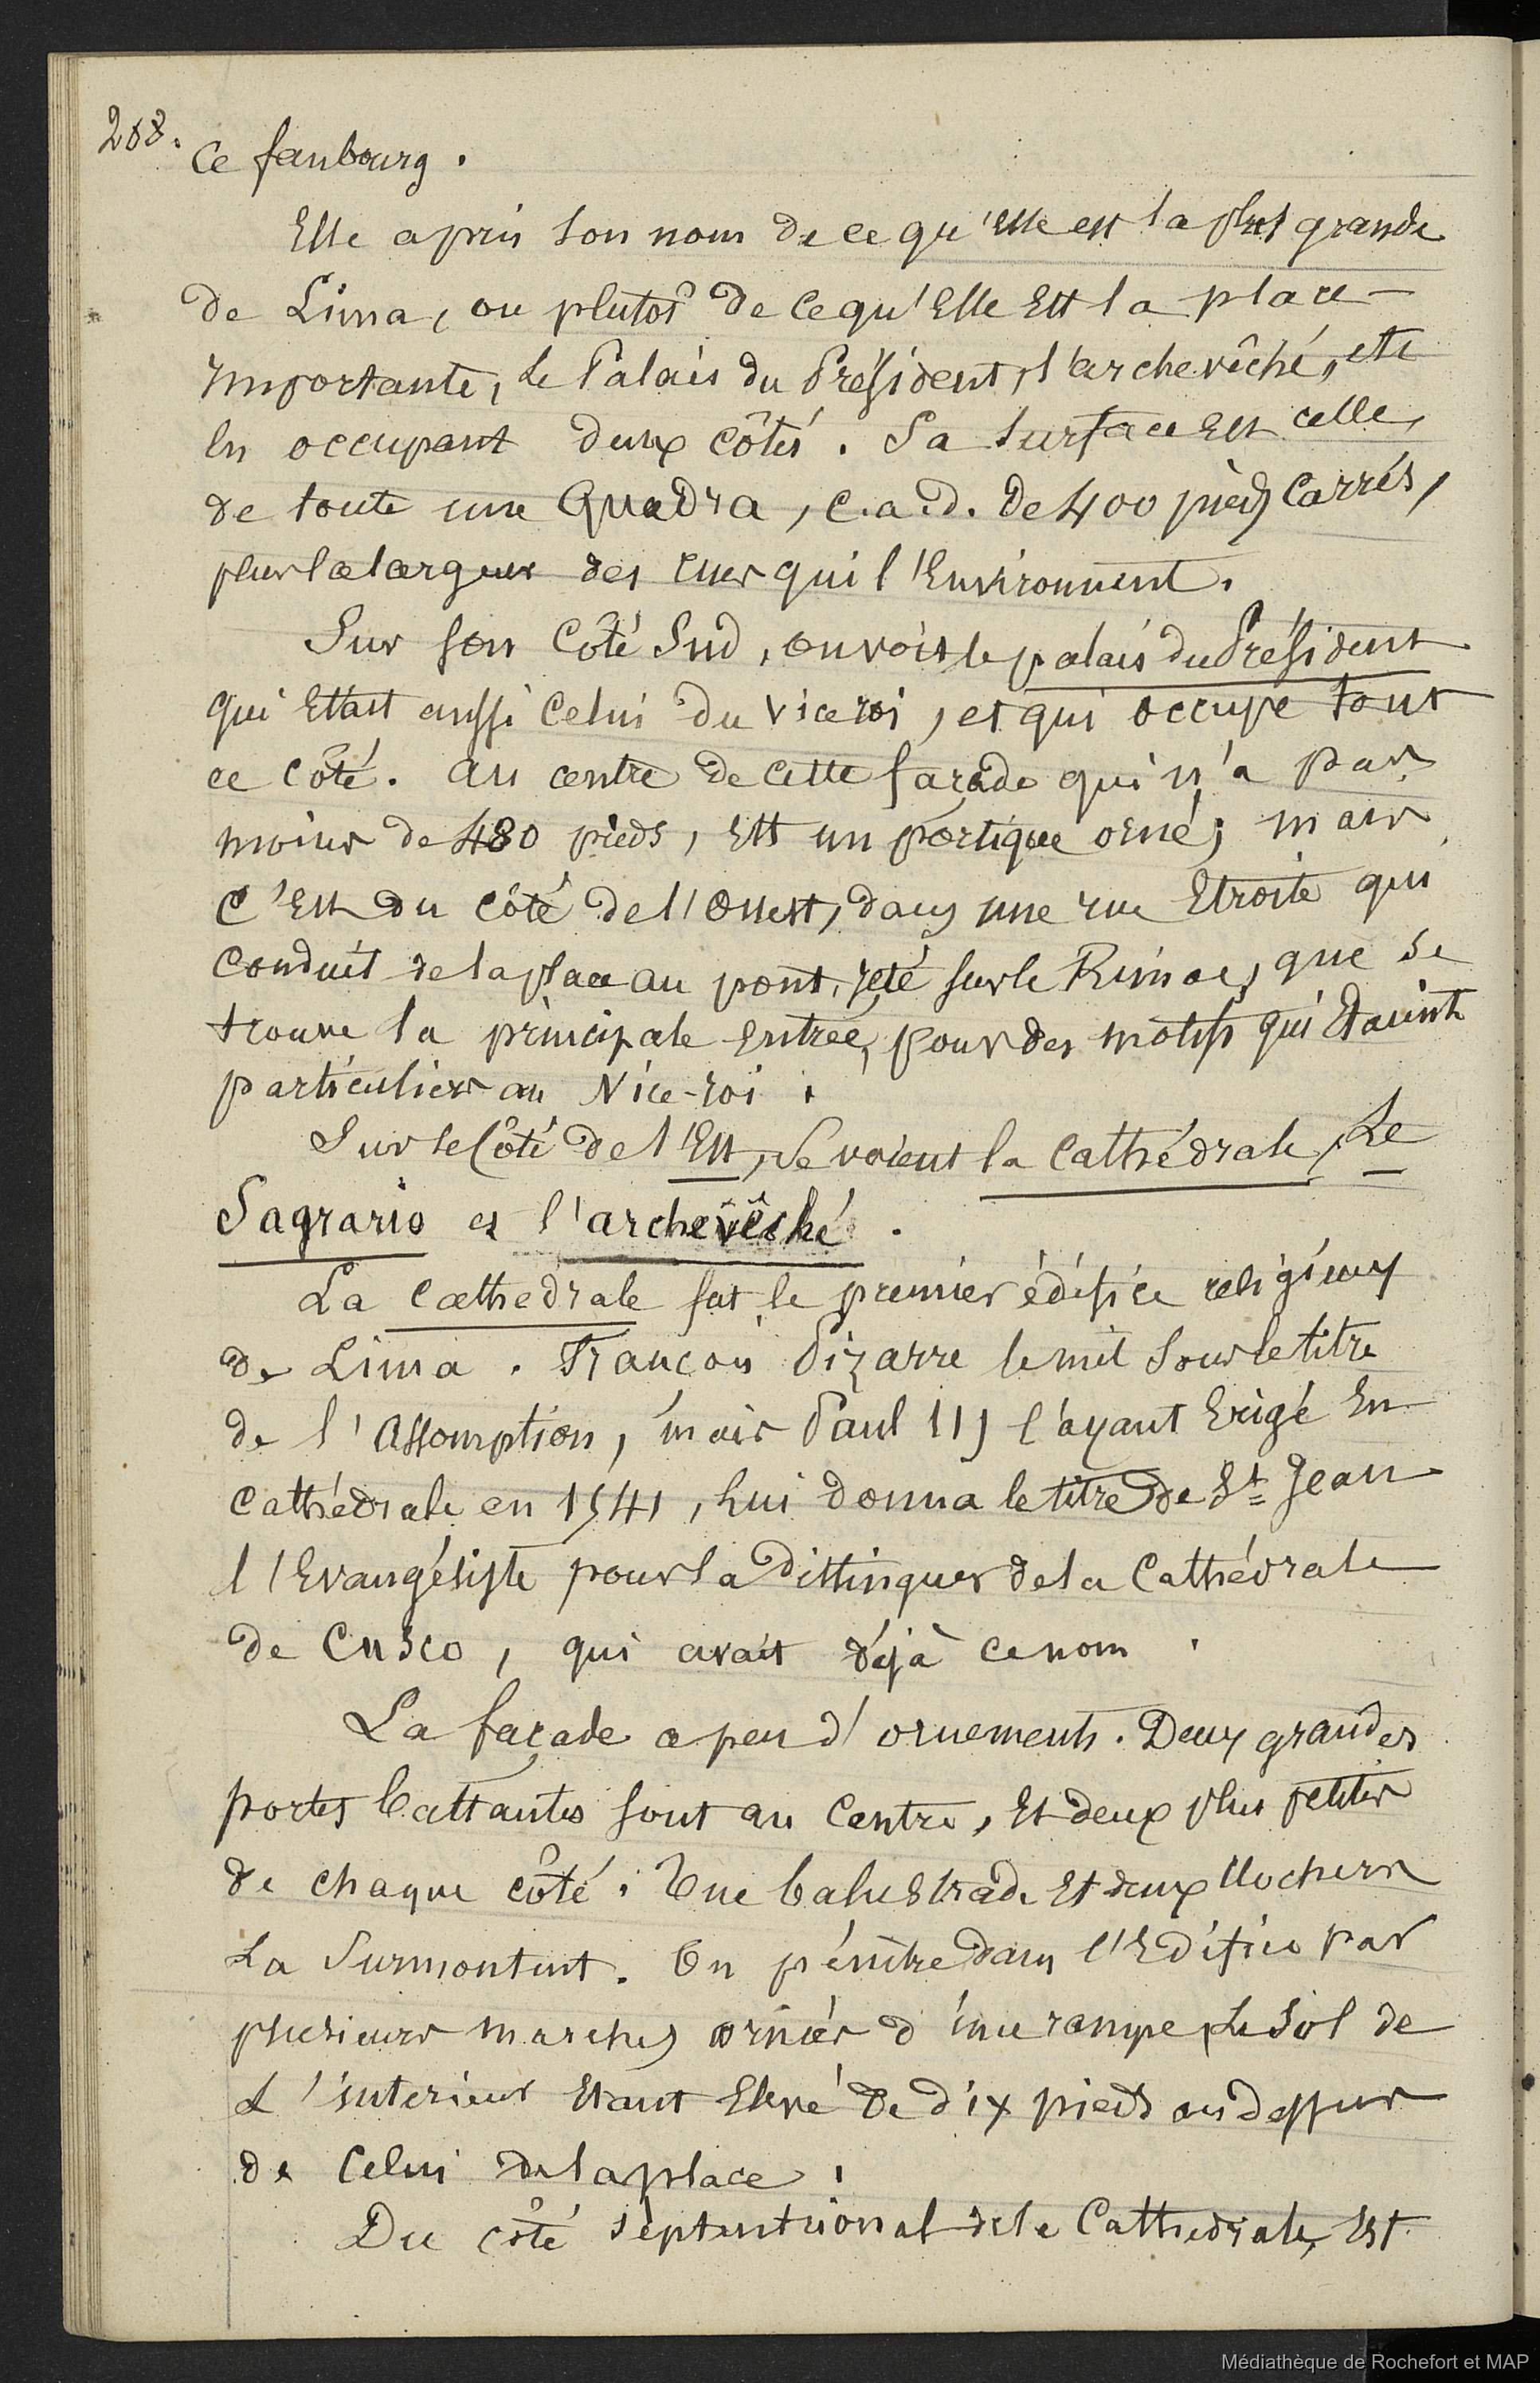 208.
Ce faubourg.
Elle a pris son nom de ce qu'elle est la plus grande
de Lima, ou plutôt de ce qu'Elle Est la place
Importante, le Palais du Président, l'archevêché, etc
en occupant deux côtés. Sa surface Est celle,
de toute une Quadra, c.a.d. De 400 pieds Carrés,
plus la largeur des rues qui l'Environnent.
Sur son Côté Sud, on voit le palais du Président
qui Etait aussi Celui du vice roi, et qui occupe tout
ce côté. au centre de cette façade qui n'a pas
moins de 480 pieds, Est un portique orné; mais
C'Est du côté de l'Ouest, dans une rue Etroite qui
Conduit de la place au pont, jeté sur le Rimac, que se
trouve la principale entrée, pour des motifs qui Etaient
particuliers au Vice-roi.
Sur le Côté de l'Est, se voient la Cathédrale, Le
Sagrario et l'archevêché.
La Cathedrale fut le premier édifice religieux
de Lima. François Pizarre le mit sous le titre
de l'Assomption, mais Paul III l'ayant Erigé En
Cathédrale en 1541, lui donna le titre de St Jean
l'Evangéliste pour la Distinguer de la Cathédrale
de Cusco, qui avait déjà ce nom.
La façade a peu d'ornements. Deux grandes
portes battantes sont au Centre, Et deux plus petites
de chaque côté. Une balustrade Et deux clochers
La Surmontent. On pénètre dans l'Edifice par
plusieurs marches ornées d'une rampe, Le Sol de
L'interieur Etant Elevé De dix pieds au dessus
de Celui de la place.
Du côté septentrional de la Cathedrale, Est
Médiathèque de Rochefort et MAP